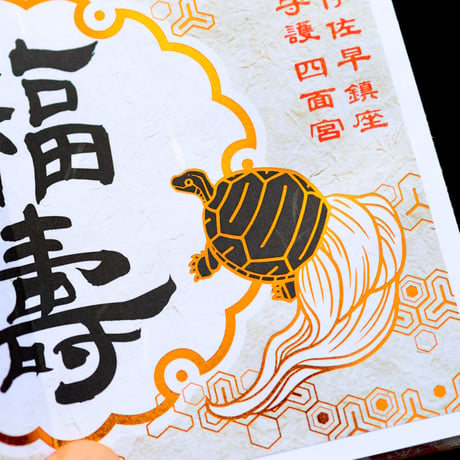 伊佐早鎮座
守護四面宮
福壽